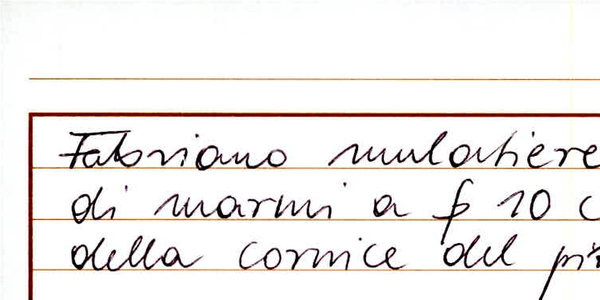 Fabriano mulatiere
di marmi a β 10 c
della cornice del